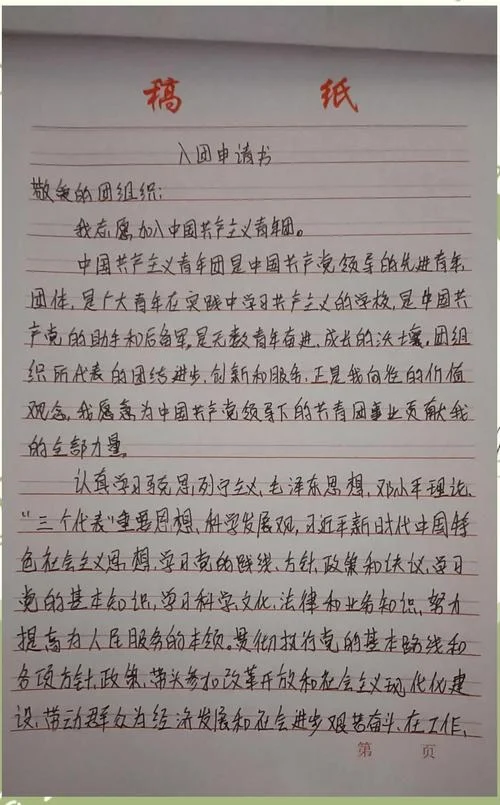 稿 纸
入团申请书
敬爱的团组织:
我志愿加入中国共产主义青年团。
中国共产主义青年团是中国共产党领导的先进青年
团体,是广大青年在实践中学习共产主义的学校,是中国共
产党的助手和后备军,是无数青年奋进、成长的沃土壤。团组
织所代表的团结进步、创新和服务,正是我向往的价值
观念,我愿意为中国共产党领导下的共青团事业贡献我
的全部力量。
认真学习马克思列宁主义、毛泽东思想、邓小平理论、
“三个代表”重要思想、科学发展观,习近平新时代中国特
色社会主义思想,学习党的路线、方针、政策和决议,学习
党的基本知识,学习科学、文化、法律和业务知识,努力
提高为人民服务的本领。贯彻执行党的基本路线和
各项方针、政策,带头参加改革开放和社会主义现代化建
设,带动群众为经济发展和社会进步艰苦奋斗,在工作、
第 页